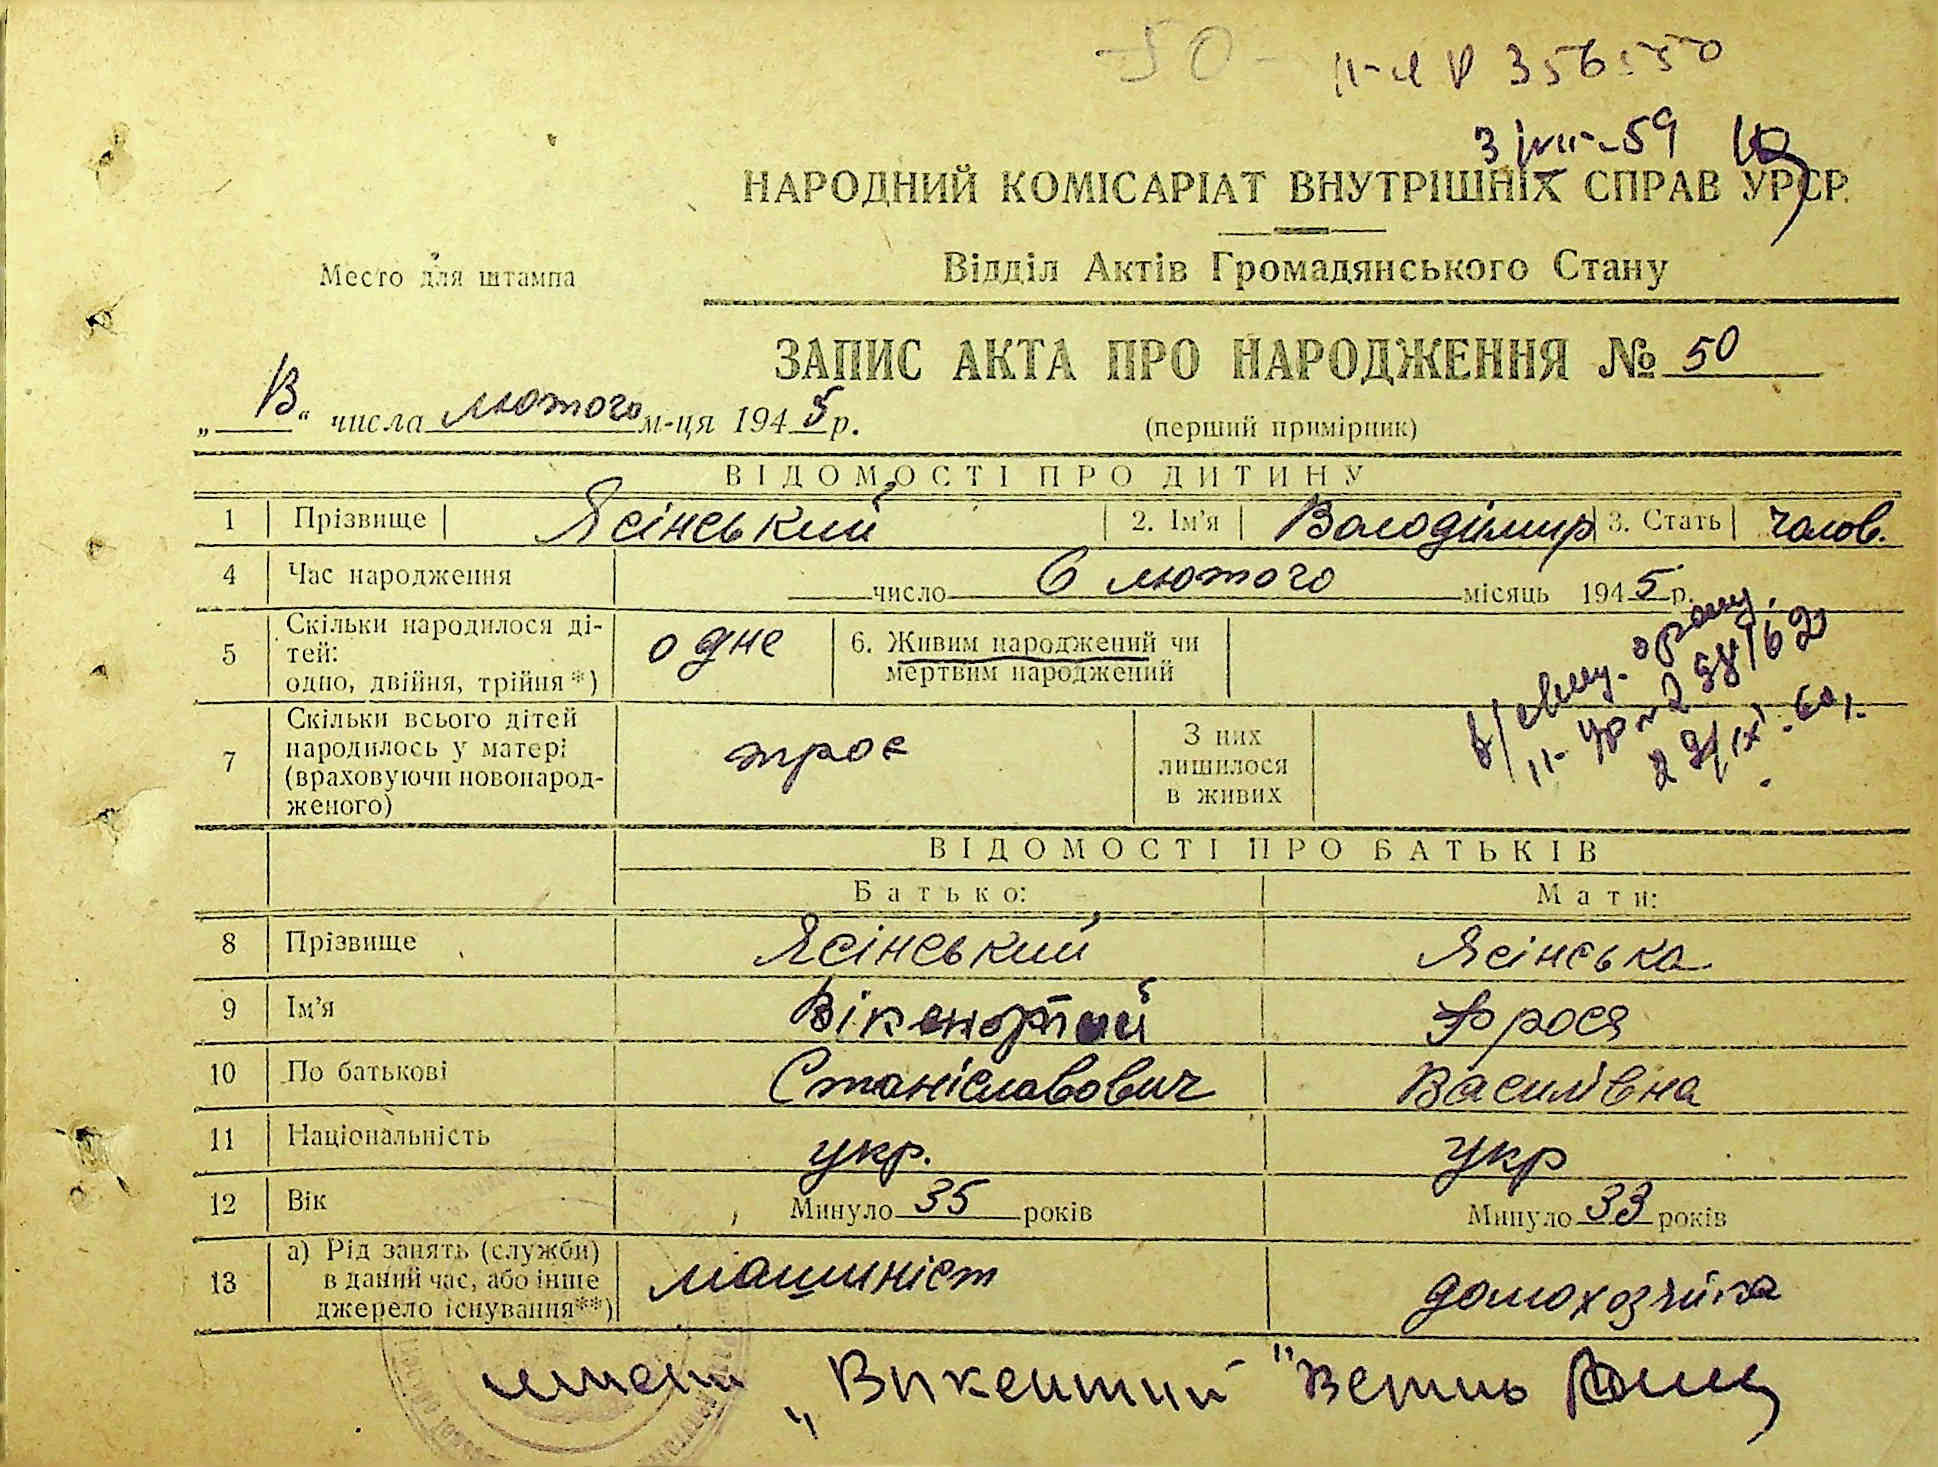 -50-
ІІ-УР 356550
3/VII-59
НАРОДНИЙ КОМІСАРІАТ ВНУТРІШНІХ СПРАВ УРСР.
Відділ Актів Громадянського Стану
Место для штампа
ЗАПИС АКТА ПРО НАРОДЖЕННЯ № 50
„ “ числа лютого м-ця 1945 р.
(перший примірник)
ВІДОМОСТІ ПРО ДИТИНУ
1 Прізвище Ясінський 2. Ім'я Володімир 3. Стать чолов.
4 Час народження число 6 лютого місяць 1945 р.
5 Скільки народилося ді-
тей:
одно, двійня, трійня*) одне
6. Живим народжений чи
мертвим народжений
7 Скільки всього дітей
народилось у матері
(враховуючи новонарод-
женого) троє
З них
лишилося
в живих
ВІДОМОСТІ ПРО БАТЬКІВ
Батько: Мати:
8 Прізвище Ясінський Ясінська
9 Ім'я Фрося
10 По батькові Станіславович Василівна
11 Національність укр. укр
12 Вік Минуло 35 років Минуло 33 років
13 а) Рід занять (служби)
в даний час, або інше
джерело існування**) машиніст домохозяйка
„Викентий"